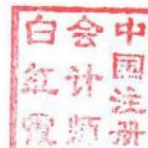 中国注册
会计师
白红霞